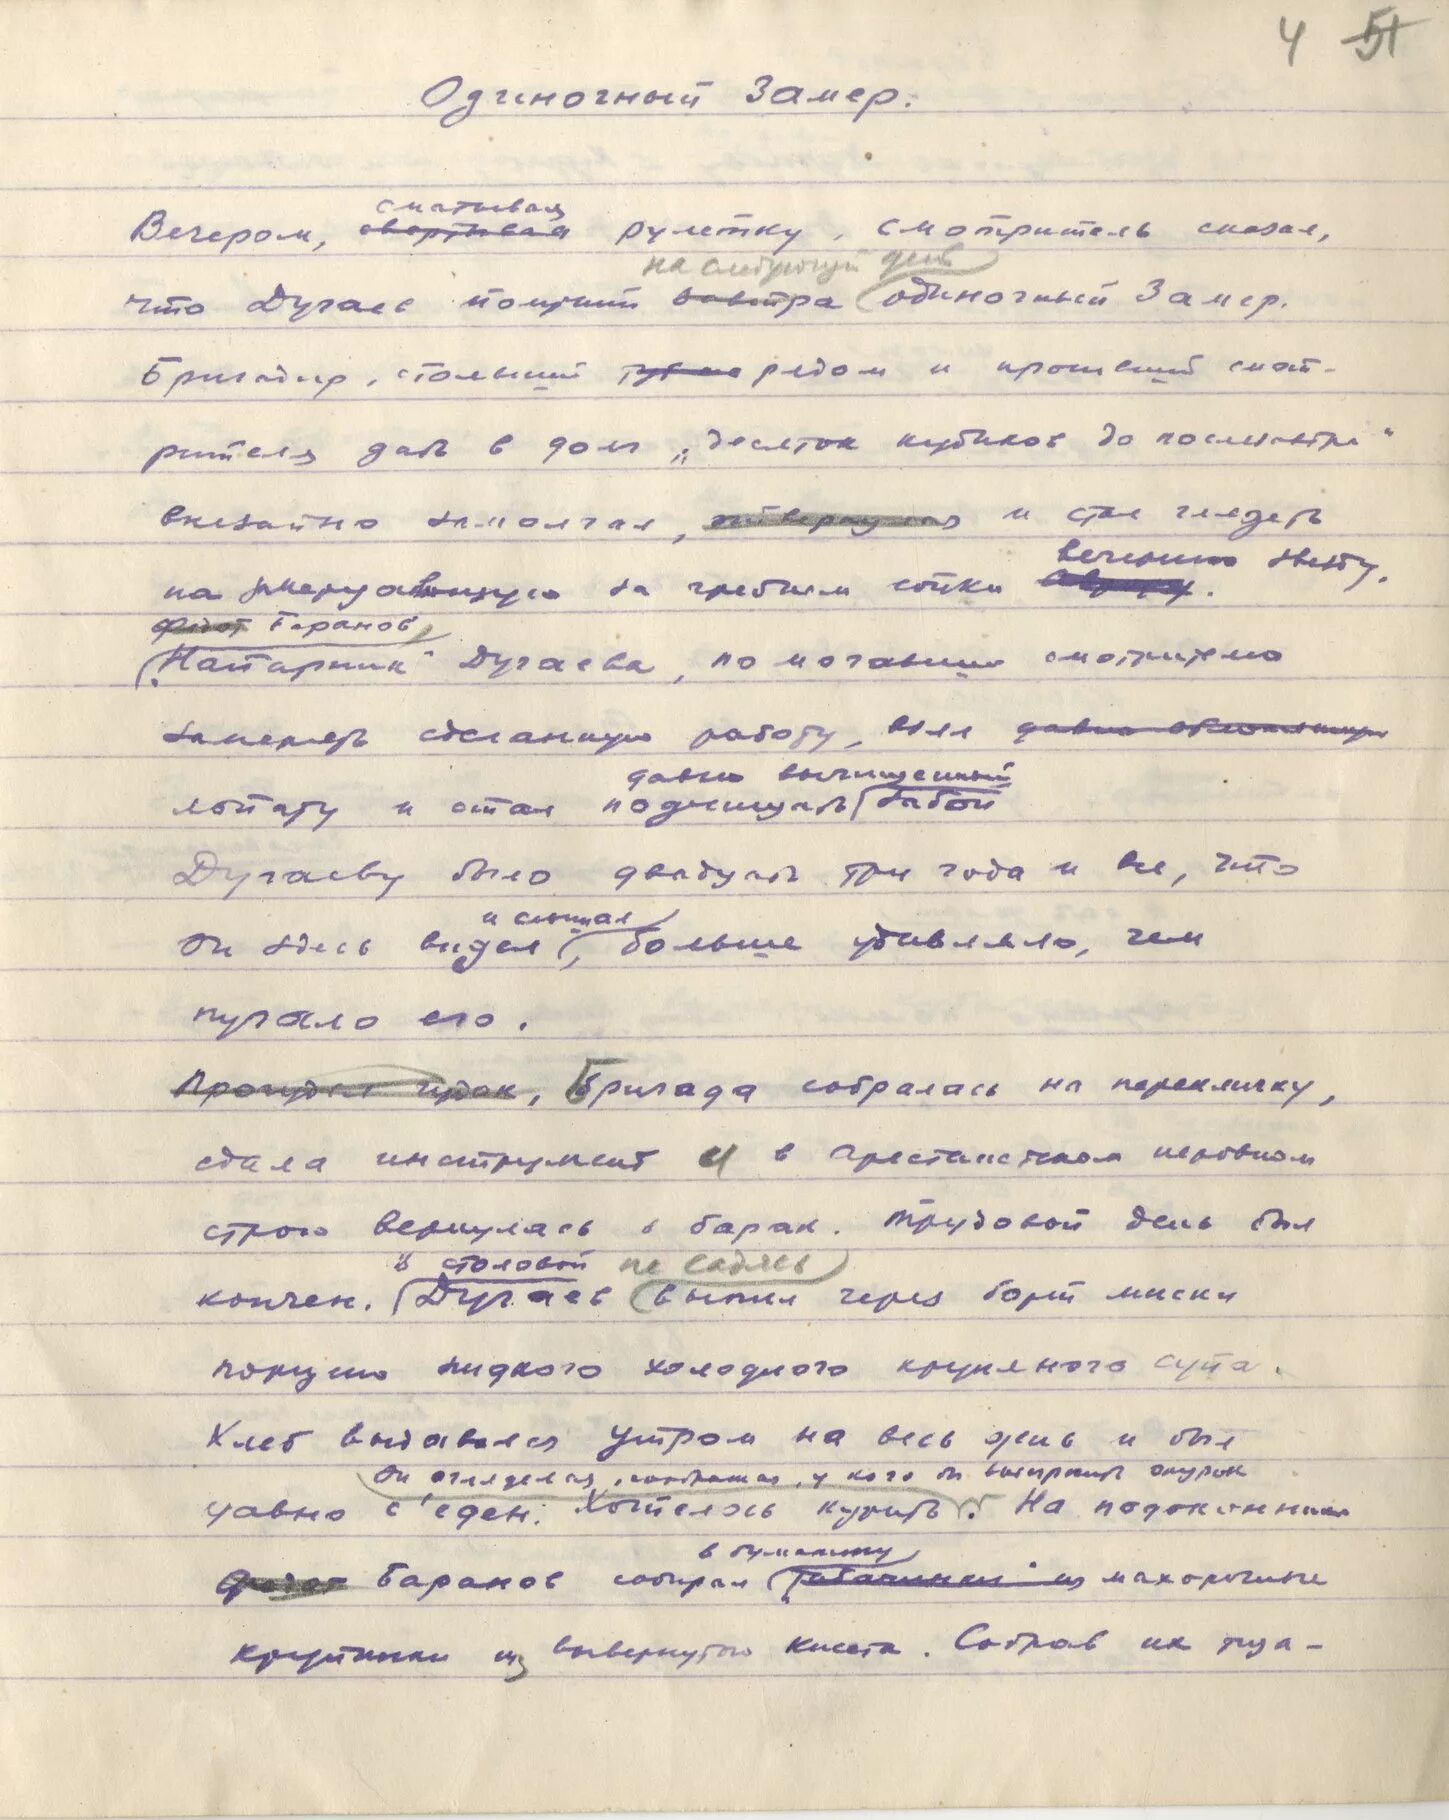 4 51
Одиночный замер.
сматывая
Вечером, свертывая рулетку, смотритель сказал,
на следующий день
что Дугаев получит завтра одиночный замер.
Бригадир, стоявший рядом и просивший смот-
рителя дать в долг „десяток кубиков до послезавтра"
внезапно замолчал, и стал глядеть
вечернюю звезду.
на мерцавшую за гребнем сопки
Баранов
„Напарник" Дугаева, помогавший смотрителю
замерять сделанную работу, взял давно
давно вычищенный
лопату и стал подчищать забой
Дугаеву было двадцать три года и все, что
и слышал
он здесь видел, больше удивляло, чем
пугало его.
Бригада собралась на перекличку,
сдала инструмент и в арестантском неровном
строю вернулась в барак. Трудовой день был
в столовой не садясь
кончен. Дугаев выпил через борт миски
порцию жидкого холодного крупяного супа.
Хлеб выдавался утром на весь день и был
он огляделся, соображая, у кого бы выпросить окурок
давно с'еден. Хотелось курить. На подоконнике
в бумажку
Баранов собирал махорочные
крупинки из вывернутого кисета. Собрав их тща-